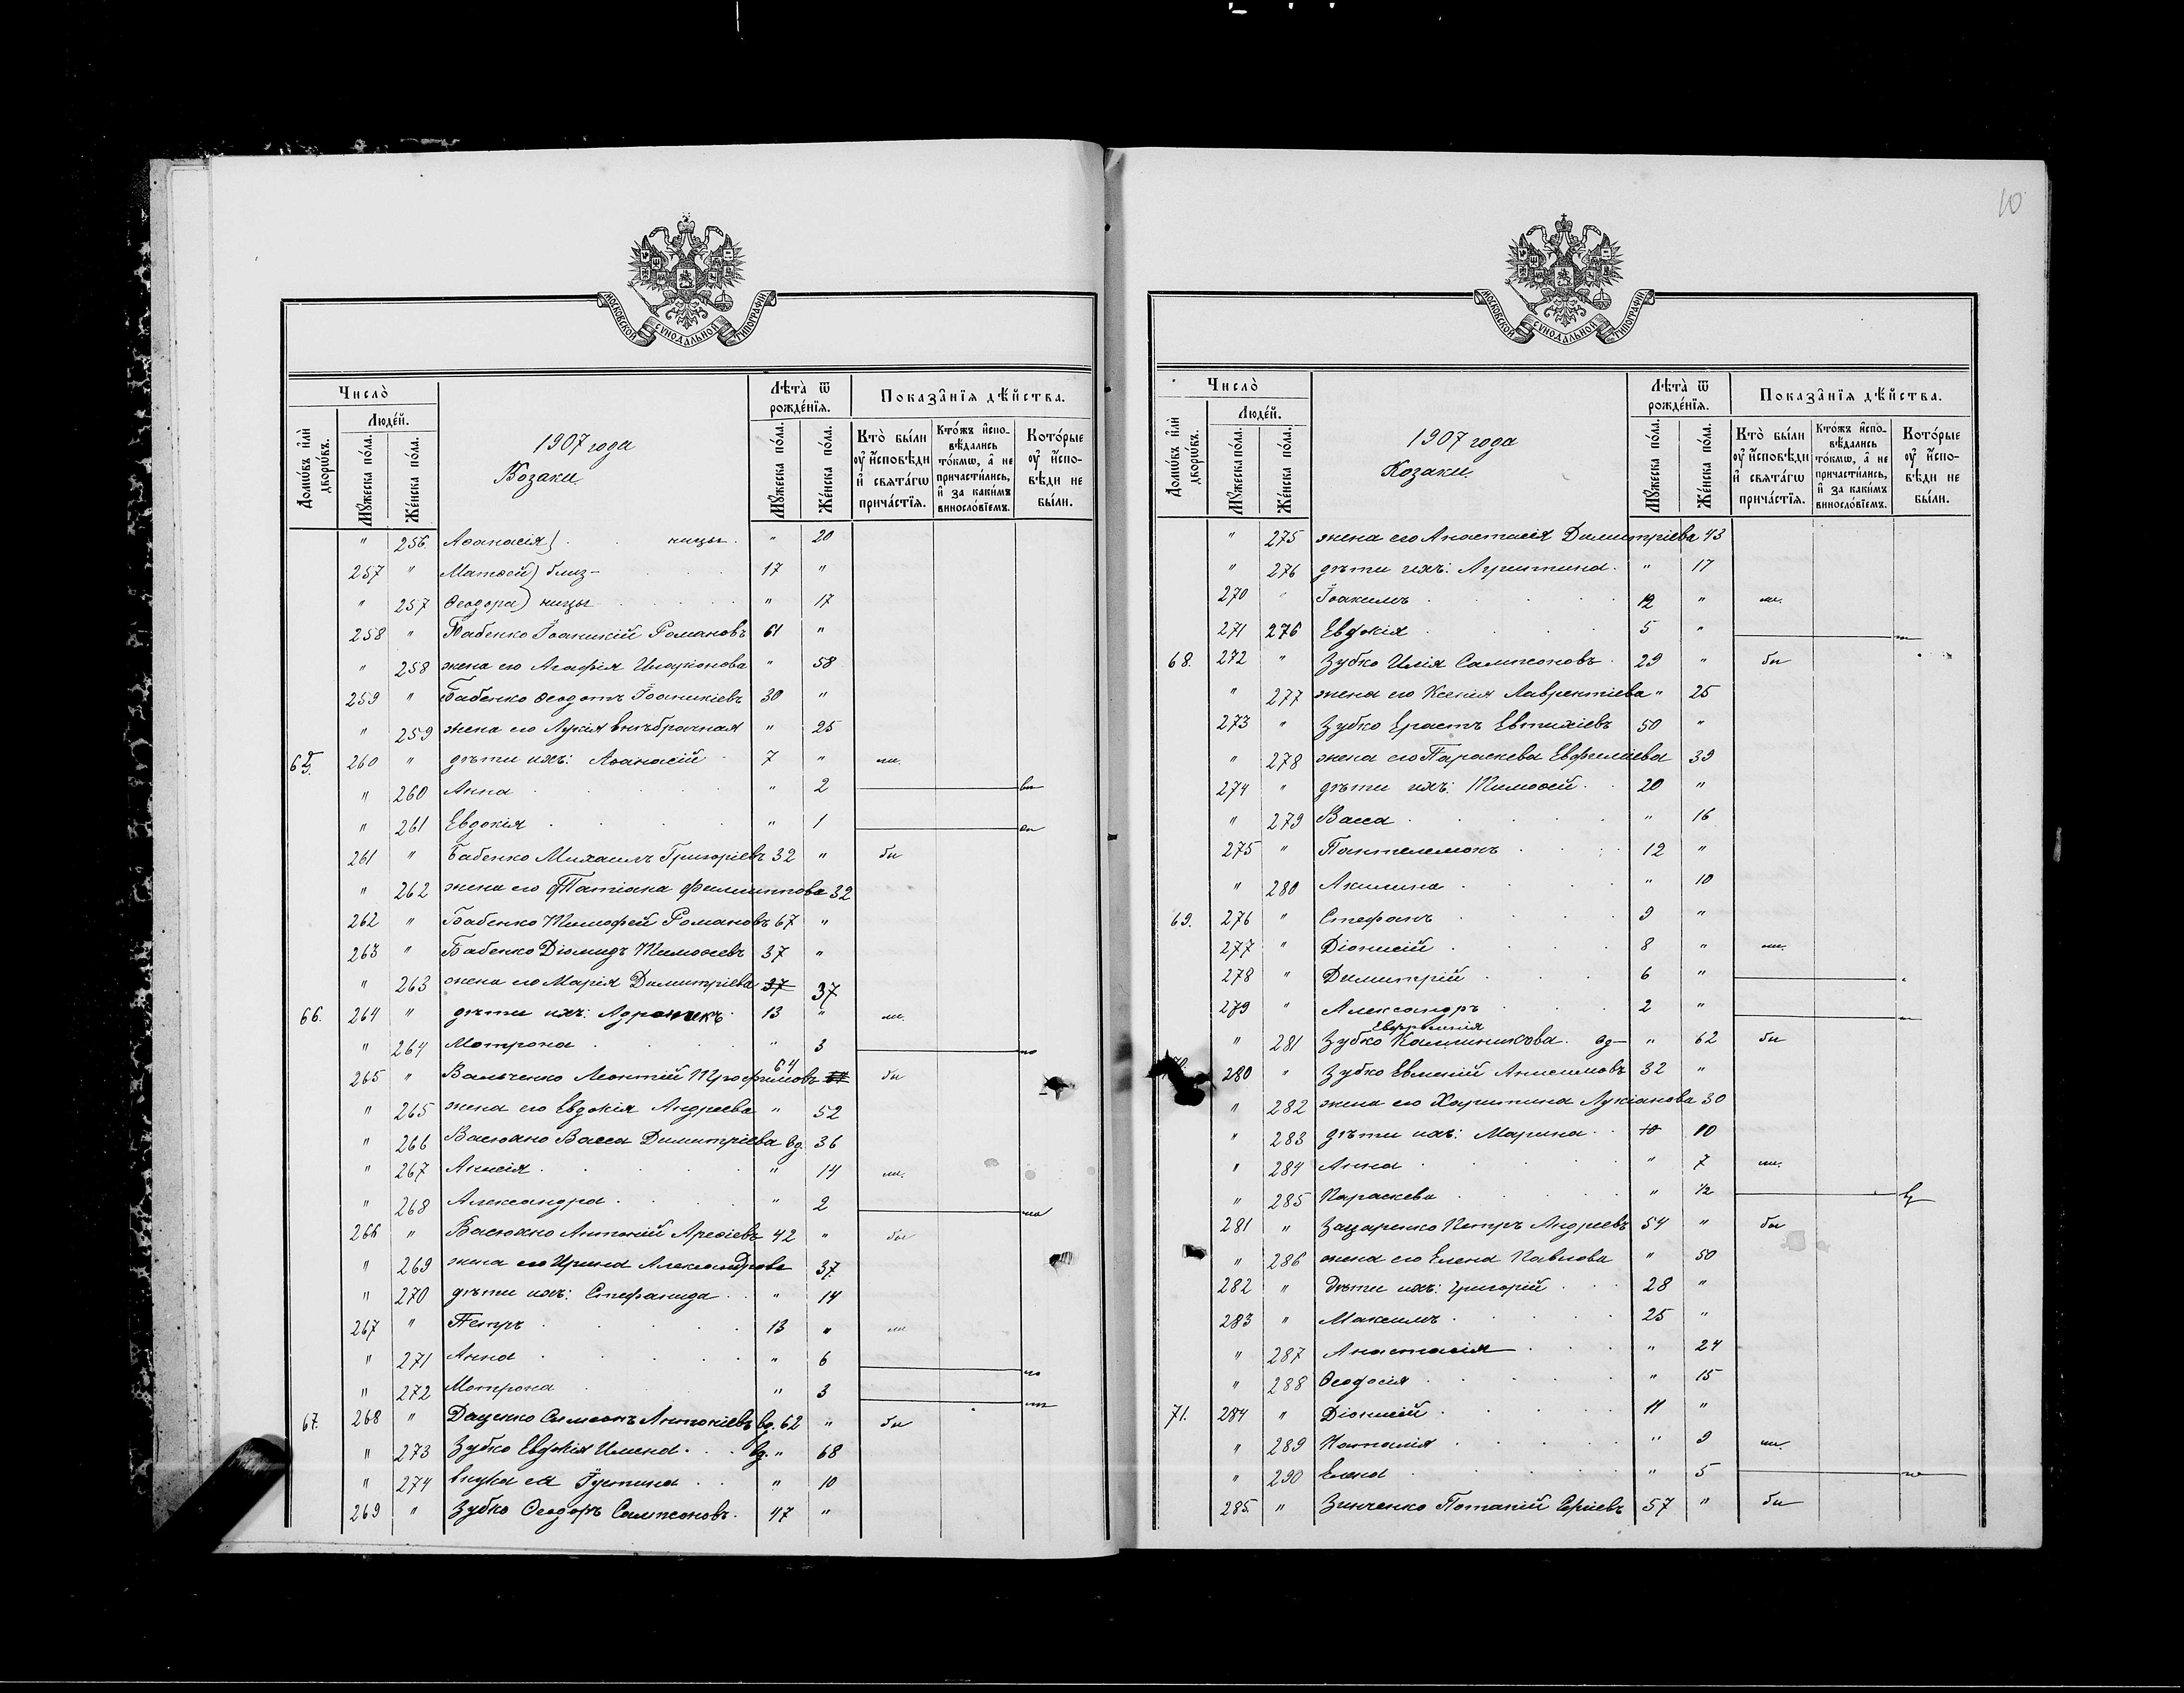 10
МОСКОВСКОЙ СѴНОДАЛЬНОЙ ТИПОГРАФІИ
Число̀
Домѡ́въ и҆лѝ дворѡ́въ.
Люде́й.
Мꙋ́жеска по́ла.
Же́нска по́ла.
1907 года
Козаки
Лѣ́та ѿ рожде́нїя.
Мꙋ́жеска по́ла.
Же́нска по́ла.
Показа̑нїя дѣ́йства.
Кто̀ бы́ли ᲂу҆ и҆́сповѣди и҆ свѧта́гѡ прича́стїѧ.
Кто́жъ и҆спо-вѣ́дались то́кмѡ, а҆ не причасти́лись, и҆ за каки́мъ винослові́емъ.
Кото́рые ᲂу҆ и҆́спо-вѣди не бы́ли.
" 256 Аѳанасія) . . ницы . " 20
257 " Матѳей) близ- 17 "
" 257 Ѳеодора) ницы " 17
258 " Бабенко Іоаникій Романовъ 61 "
" 258 жена его Агафія Иларіонова " 58
259 " Бабенко Ѳеодотъ Іоаникіевъ 30 "
" 259 жена его Лукія внѣбрачная " 25
65. 260 " дѣти ихъ: Аѳанасій 7 " мл.
" 260 Анна " 2
" 261 Евдокія " 1
261 " Бабенко Михаилъ Григоріевъ 32 " бы
" 262 жена его Татіана Филиппова 32
262 " Бабенко Тимофей Романовъ 67 "
263 " Бабенко Діомидъ Тимоѳеевъ 37 "
" 263 жена его Марія Димитріева 37 37
66. 264 " дѣти ихъ: Адроникъ 13 " мл.
" 264 Матрона " 3
265 " Вальченко Леонтій Трофимовъ 64 бы
" 265 жена его Евдокія Андреева " 52
" 266 Васюхно Васса Димитріева вд. 36
" 267 Анисія " 14 мл.
" 268 Александра " 2
266 " Васюхно Антоній Арефіевъ 42 " бы
" 269 жена его Ирина Александрова 37
" 270 дѣти ихъ: Стефанида " 14
267 " Петръ 13 " мл
" 271 Анна " 6
" 272 Матрона " 3
67. 268 " Даценко Симеонъ Антоніевъ вд. 62 " бы
" 273 Зубко Евдокія Ильина вд. " 68
" 274 внука ея Іустина " 10
269 " Зубко Ѳеодоръ Сампсоновъ 47 "
МОСКОВСКОЙ СѴНОДАЛЬНОЙ ТИПОГРАФІИ
Число̀
Домѡ́въ и҆лѝ дворѡ́въ.
Люде́й.
Мꙋ́жеска по́ла.
Же́нска по́ла.
1907 года
Козаки.
Лѣ́та ѿ рожде́нїя.
Мꙋ́жеска по́ла.
Же́нска по́ла.
Показа̑нїя дѣ́йства.
Кто̀ бы́ли ᲂу҆ и҆́сповѣди и҆ свѧта́гѡ прича́стїѧ.
Кто́жъ и҆спо-вѣ́дались то́кмѡ, а҆ не причасти́лись, и҆ за каки́мъ винослові́емъ.
Кото́рые ᲂу҆ и҆́спо-вѣди не бы́ли.
" 275 жена его Анастасія Димитріева 43
" 276 дѣти ихъ: Агрипина " 17
270 " Іоакимъ 12 " мл.
271 276 Евдокія 5 "
68. 272 " Зубко Илія Сампсоновъ 29 " бы
" 277 жена его Ксенія Лаврентіева " 25
273 " Зубко Ерастъ Евтихіевъ 50 "
" 278 жена его Параскева Евфиміева 39
274 " дѣти ихъ: Тимоѳей 20 "
" 279 Васса " 16
275 " Пантелемонъ 12 "
" 280 Акилина " 10
69. 276 " Стефанъ 9 "
277 " Діонисій 8 " мл.
278 " Димитрій 6 "
279 " Александръ 2 "
" 281 Зубко Евфросинія Калиникова вд- " 62 бы
70. 280 " Зубко Евмений Анисимовъ 32 "
" 282 жена его Харитина Лукіанова 30
" 283 дѣти ихъ: Марина 10 10
" 284 Анна " 7 мл.
" 285 Параскева " 1/2
281 " Зацаренко Петръ Андреевъ 54 " бы
" 286 жена его Елена Павлова " 50
282 " дѣти ихъ: Григорій 28 "
283 " Максимъ 25 "
" 287 Анастасія " 24
" 288 Ѳеодосія " 15
71. 284 " Діонисій 11 "
" 289 Наталія " 9 мл.
" 290 Елена " 5
285. " Зинченко Потапій Сергіевъ 57 " бы